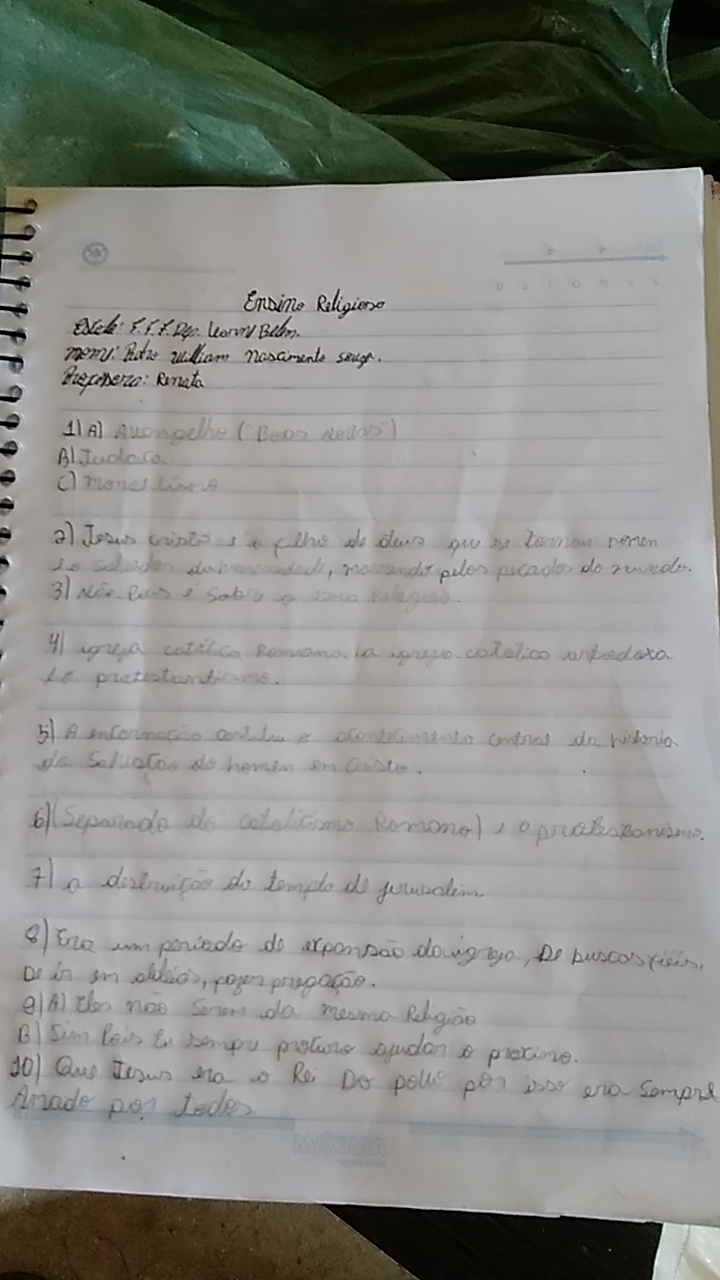 Ensino Religioso
Escola: F.F.F. Dep. Leorne Belém.
nome: Pedro william nascimento souza.
Professora: Renata
1) A) Avangelho ("Boas Novas")
B) Judaica
C) monoteísmo
2) Jesus cristo e o filho de deus que se tornou homen
e o salvador da humanidade, morrendo pelos pecados do mundo.
3) Não. Pois é sobre a sua Religião.
4) igreja católica Romana, a igreja católica ortodoxa
e o protestantismo.
5) A encarnação constitui o acontecimento central da historia
da Salvação do homen em Cristo.
6) (Separado do catolicismo Romano) e o protestanismo.
7) a destruição do templo de jerusalém
8) Era um periodo de expansão da igreja, De buscas fiéis,
De ir em aldeias, fazer pregação.
9) A) Eles não Serem da mesma Religião
B) Sim Pois Eu sempre procuro ajudar o proximo.
10) Que Jesus era o Rei Do povo por isso era Sempre
Amado por todos